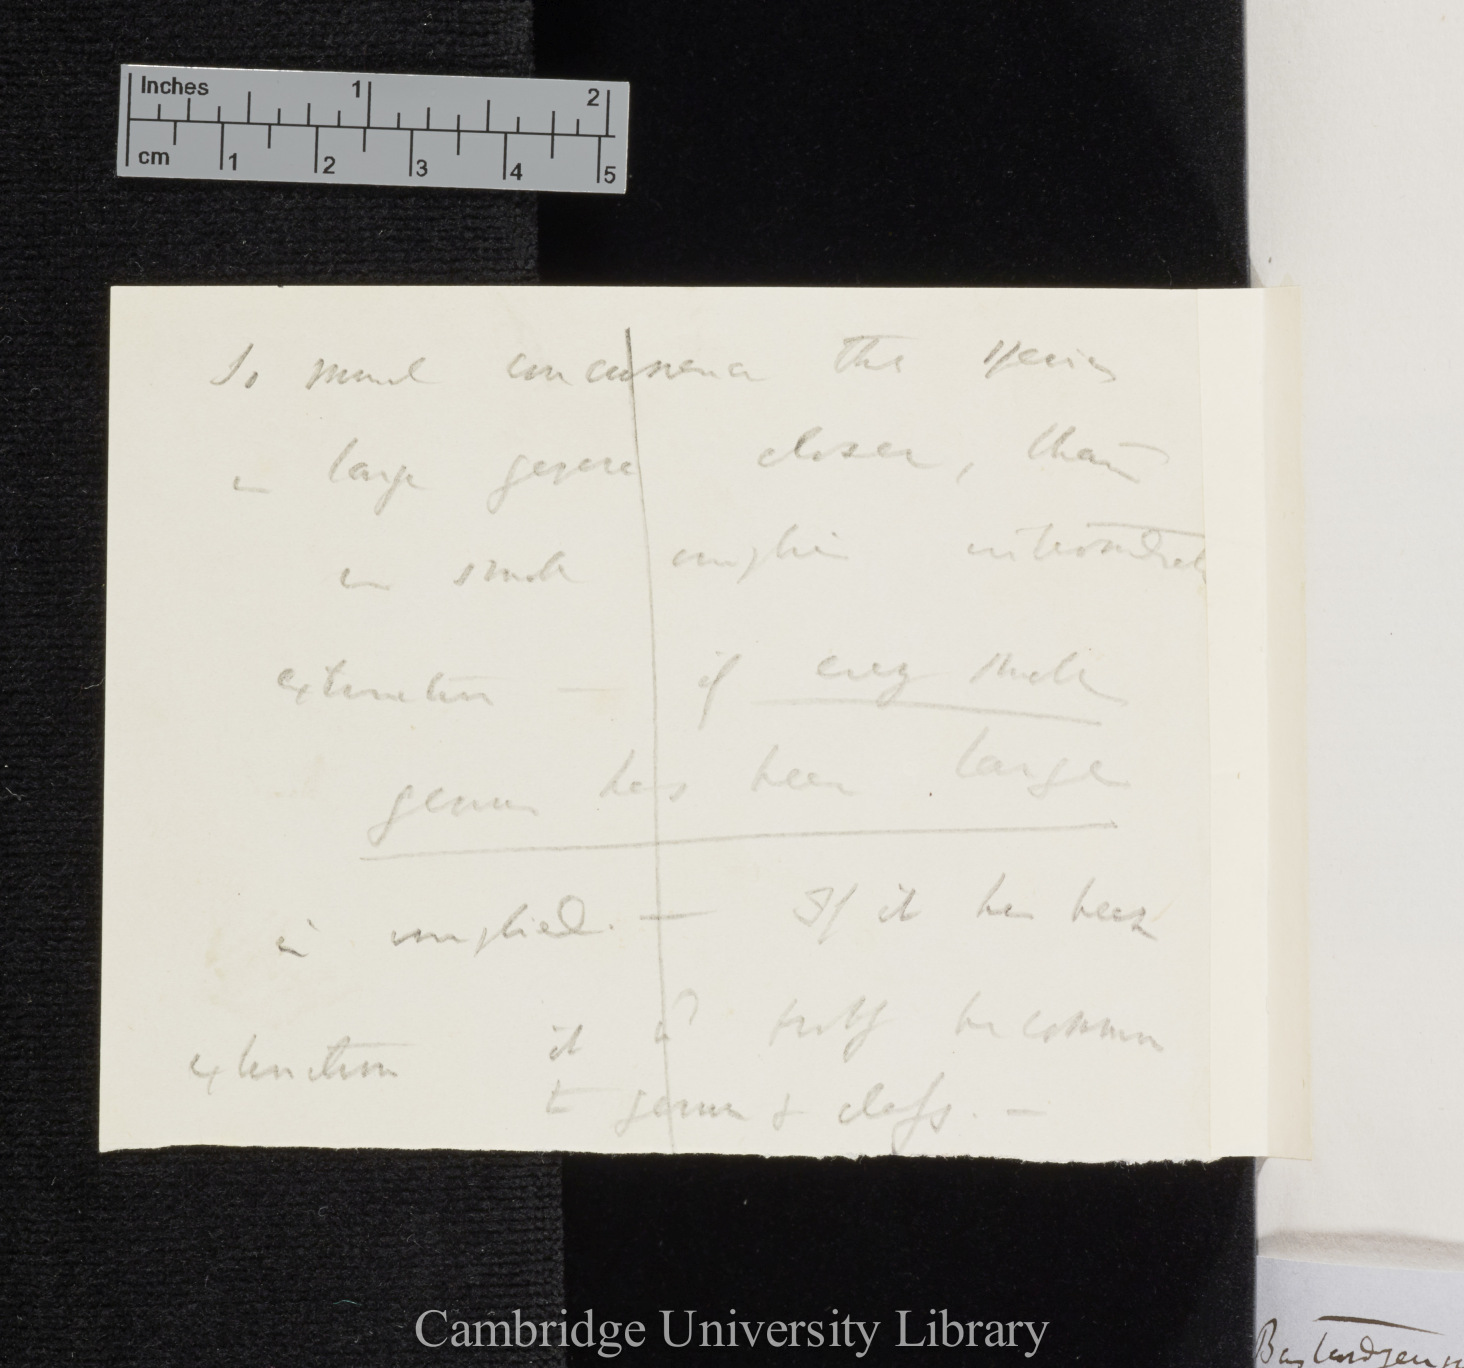 Inches 1 2
cm 1 2 3 4 5
So much the species
in large genera closer, than
in small implies
extinction — if every small
genus has been large
is implied. — If it has been
extinction it is be common
to genus & class. —
Cambridge University Library